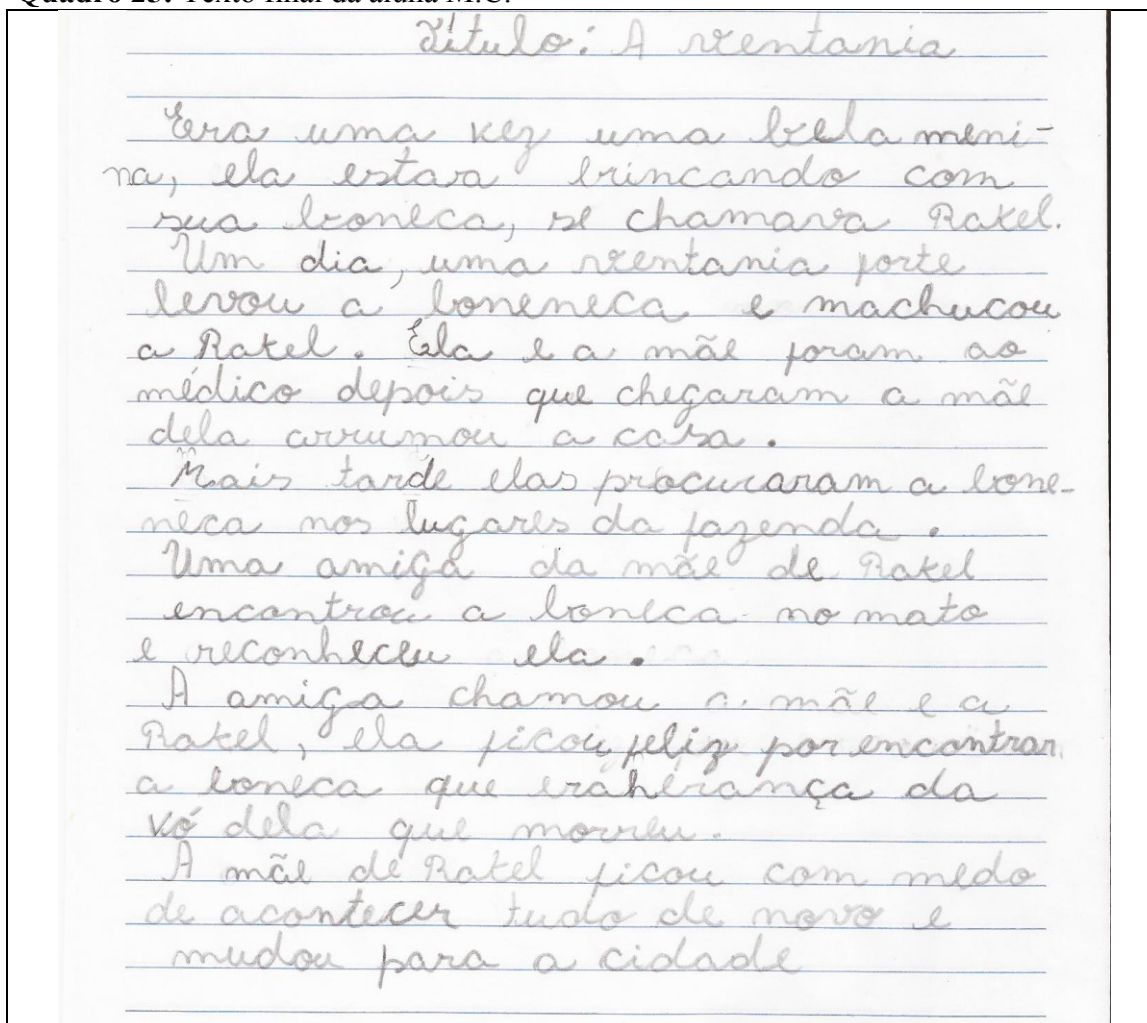 Quadro 25: Texto final da aluna M.C.
Título: A ventania
Era uma vez uma bela meni-
na, ela estava brincando com
sua boneca, se chamava Rakel.
Um dia, uma ventania forte
levou a boneneca e machucou
a Rakel. Ela e a mãe foram ao
médico depois que chegaram a mãe
dela arrumou a casa.
Mais tarde elas procuraram a bone-
neca nos lugares da fazenda.
Uma amiga da mãe de Rakel
encontrou a boneca no mato
e reconheceu ela.
A amiga chamou a mãe e a
Rakel, ela ficou feliz por encontrar
a boneca que era herança da
vó dela que morreu.
A mãe de Rakel ficou com medo
de acontecer tudo de novo e
mudou para a cidade